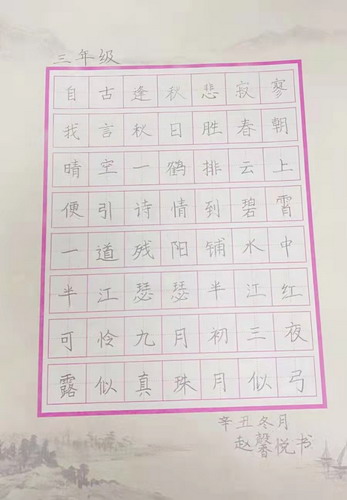 三年级
自古逢秋悲寂寥
我言秋日胜春朝
晴空一鹤排云上
便引诗情到碧霄
一道残阳铺水中
半江瑟瑟半江红
可怜九月初三夜
露似真珠月似弓
辛丑冬月
赵馨悦书